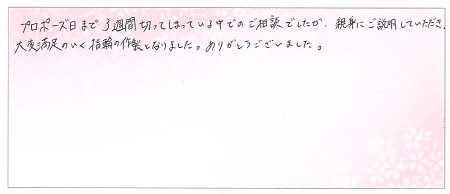 プロポーズ日まで3週間切ってしまっている中でのご相談でしたが、親身にご説明していただき、
大変満足のいく指輪の作製となりました。ありがとうございました。